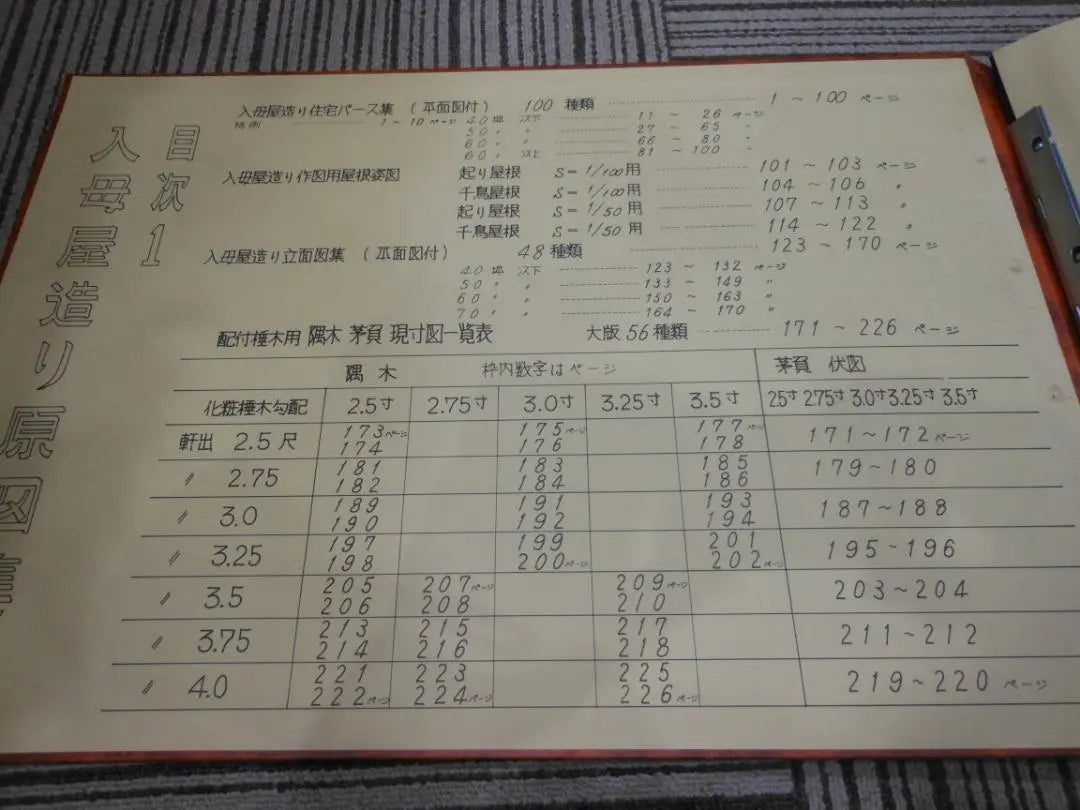 目次1
入母屋造り原図集
入母屋造り住宅パース集 (平面図付) 100種類 1～100ページ
特例 1～10ページ 40坪以下 11～26ページ
50〃 〃 27～65 〃
60〃 〃 66～80 〃
60〃 以上 81～100 〃
入母屋造り作図用屋根姿図 起り屋根 S=1/100用 101～103ページ
千鳥屋根 S=1/100用 104～106 〃
起り屋根 S=1/50用 107～113 〃
千鳥屋根 S=1/50用 114～122 〃
入母屋造り立面図集 (平面図付) 48種類 123～170ページ
40坪以下 123～132ページ
50〃 〃 133～149 〃
60〃 〃 150～163 〃
70〃 〃 164～170 〃
配付棰木用 隅木 茅負 現寸図一覧表 大版56種類 171～226ページ
隅木 枠内数字はページ 茅負 伏図
化粧棰木勾配 2.5寸 2.75寸 3.0寸 3.25寸 3.5寸 2.5寸 2.75寸 3.0寸 3.25寸 3.5寸
軒出 2.5尺 173ページ 174 175ページ 176 177ページ 178 171～172ページ
〃 2.75 181 182 183 184 185 186 179～180
〃 3.0 189 190 191 192 193 194 187～188
〃 3.25 197 198 199 200ページ 201 202ページ 195～196
〃 3.5 205 206 207ページ 208 209ページ 210 203～204
〃 3.75 213 214 215 216 217 218 211～212
〃 4.0 221 222ページ 223 224ページ 225 226ページ 219～220ページ